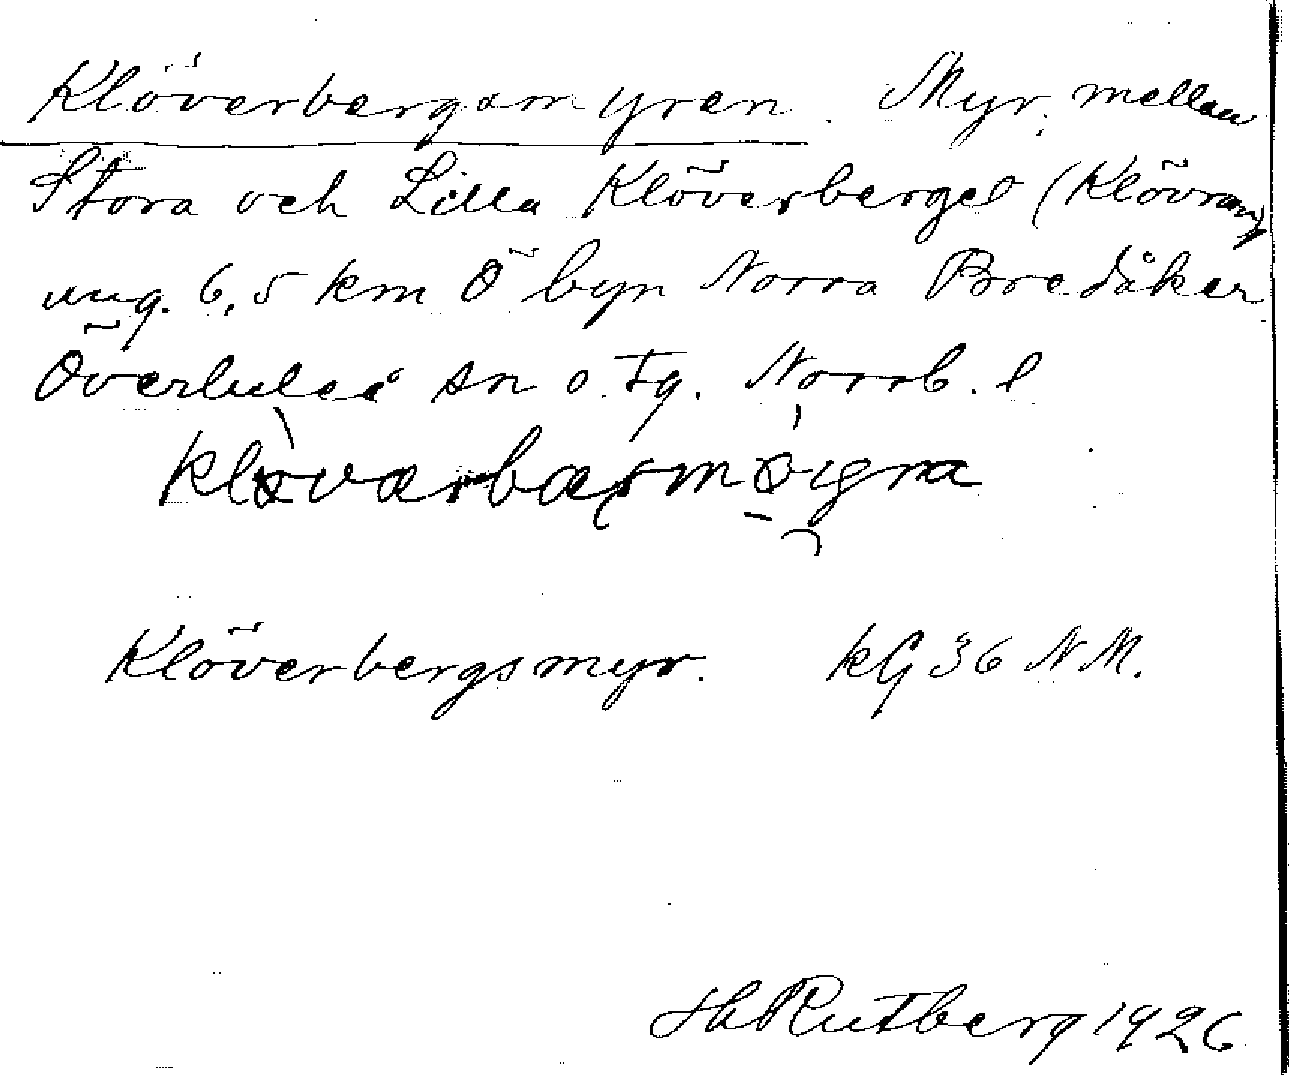 Klöverbergsmyren. Myr, mellan
Stora och Lilla Klöverberget (Klövran)
ung. 6,5 km Ö byn Norra Bredåker
Överluleå sn o. tg. Norrb. l
Klöverbergsmyr. KG 36 NM.
Hh Rutberg 1926